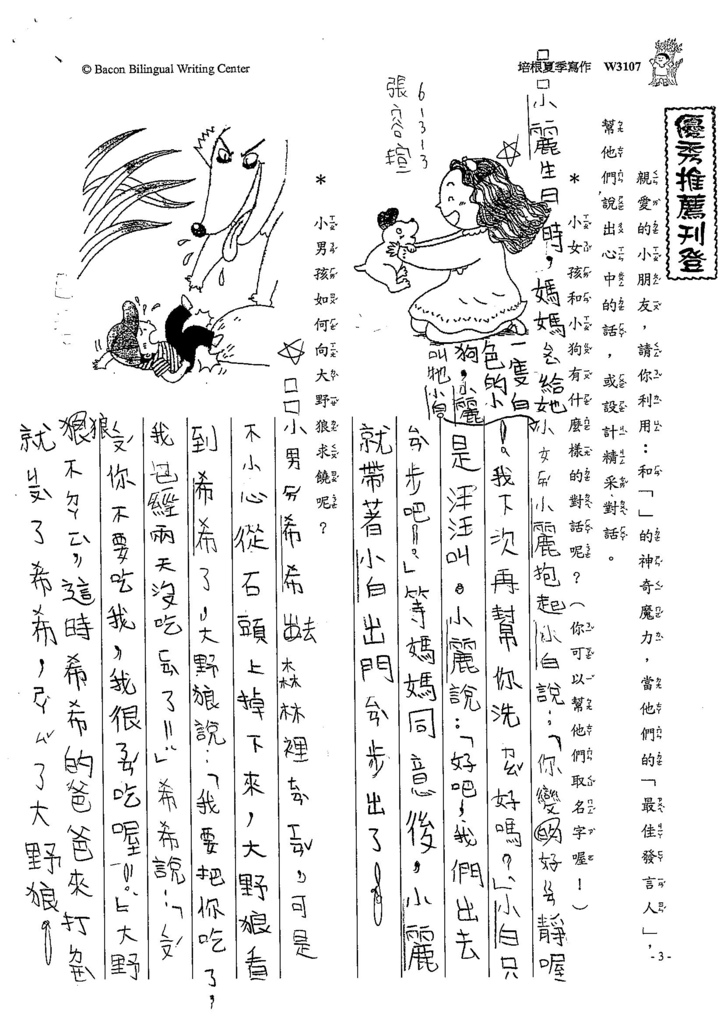 © Bacon Bilingual Writing Center
培根夏季寫作 W3107
優秀推薦刊登
親愛的小朋友，請你利用：和「」的神奇魔力，當他們的「最佳發言人」，
幫他們說出心中的話，或設計精采對話。
* 小女孩和小狗有什麼樣的對話呢？（你可以幫他們取名字喔！）
6-3-3
張容瑄
□□小麗生日時，媽媽ㄙ給她
一隻白
色的小
狗，小麗
叫牠小白
。小麗抱起小白說：「你變的好
靜喔
。我下次再幫你洗
好嗎？」小白只
是汪汪叫。小麗說：「好吧，我們出去
步吧！」等媽媽同意後，小麗
就帶著小白出門
步出了！
* 小男孩如何向大野狼求饒呢？
□□小男
希希出去森林裡
，可是
不小心從石頭上掉下來，大野狼看
到希希了，大野狼說：「我要把你吃了，
我已經兩天沒吃
了！」希希說：「
你不要吃我，我很
吃喔！」大野
狼
不
，這時希希的爸爸來打
就
了希希，
了大野狼！
-3-